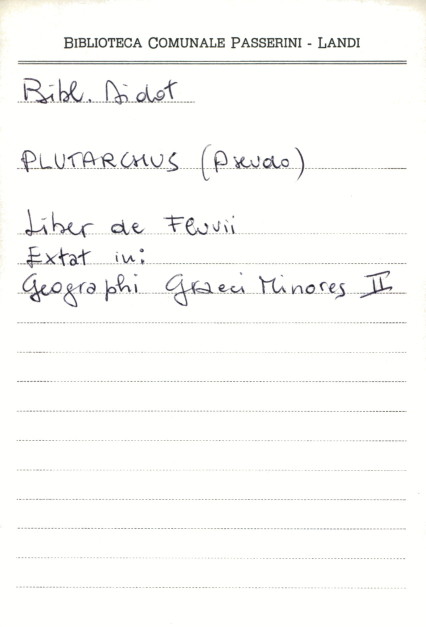 BIBLIOTECA COMUNALE PASSERINI - LANDI
Bibl. Didot
PLUTARCHUS (Pseudo)
Liber de Fluvii
Extat in:
Geographi Graeci Minores II